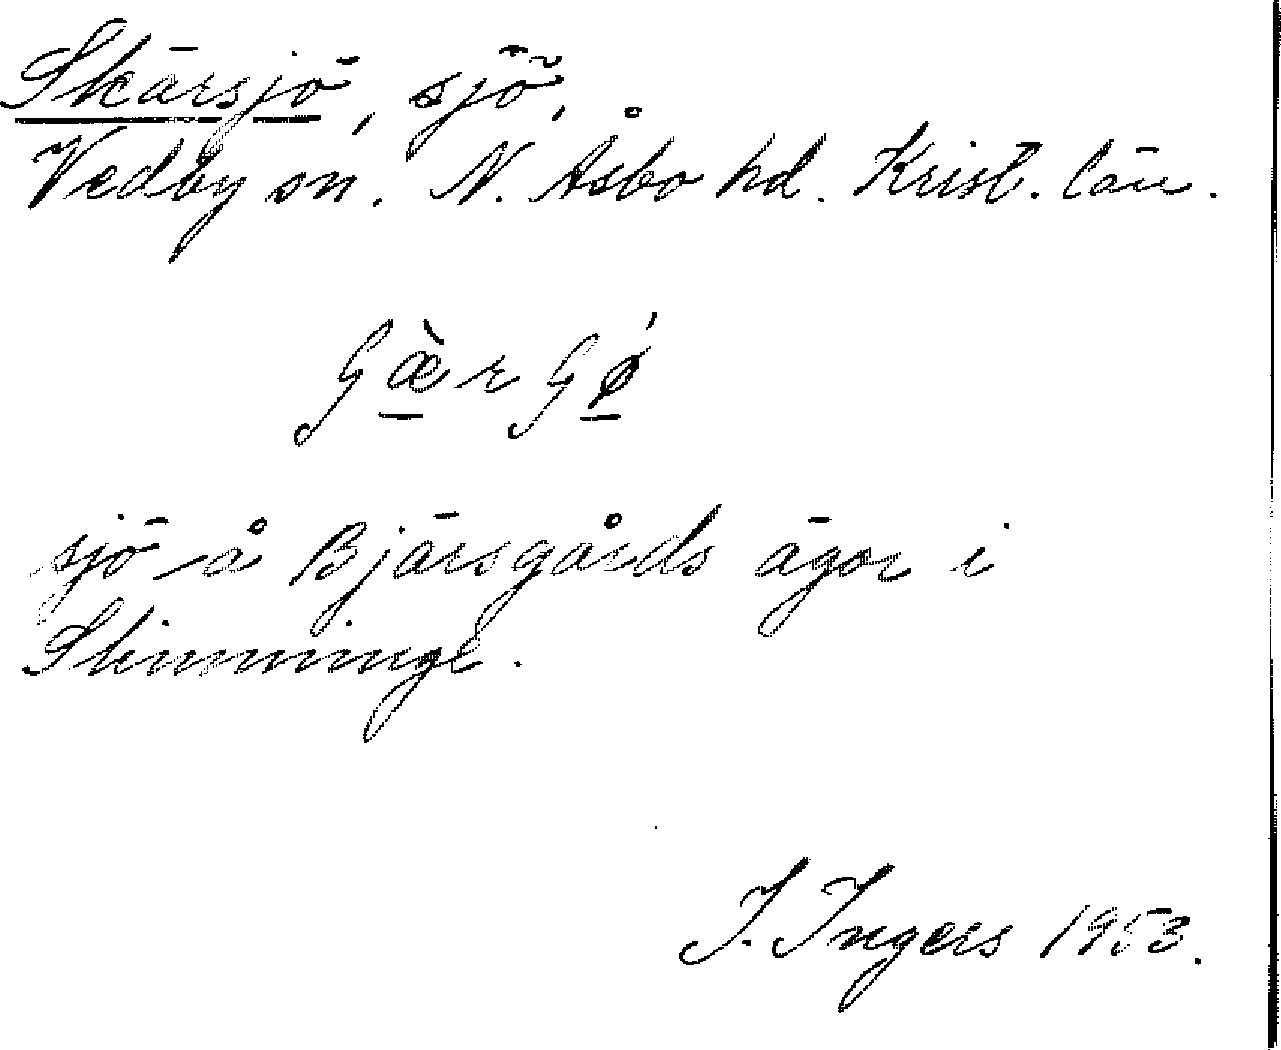 Skärsjö, sjö,
Vedby sn. N. Åsbo hd. Krist. län.
sjö å Bjärsgårds ägor i
Stimminge.
I. Ingers 1953.